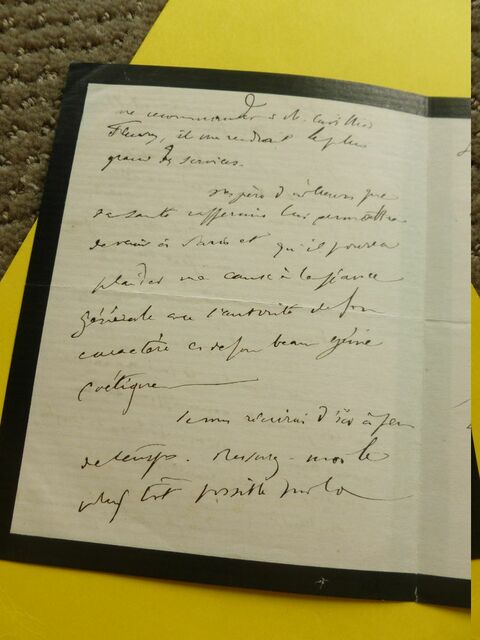 me recommander à M. Cuvillier
Fleury, il me rendrait le plus
grand des services.
J'espère d'ailleurs que
sa santé raffermie lui permettra
de venir à Paris et qu'il pourra
plaider ma cause à la séance
générale avec l'autorité de son
caractère et de son beau génie
poétique
Je vous écrirai d'ici à peu
de temps. Rassurez-moi le
plus tôt possible sur la